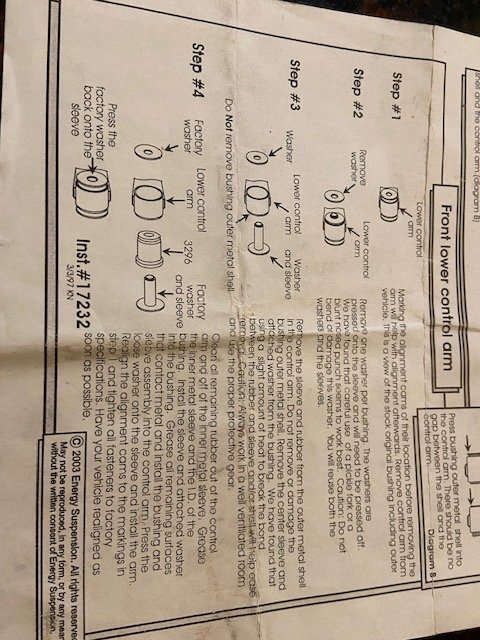 shell and the control arm.(diagram 8)
Press bushing outer metal shell into
the control arm. There should be no
gap between the shell and the
control arm.
Diagram 8
Front lower control arm
Step #1
Lower control
arm
Marking the alignment cams of their location before removing the
arm will help with alignment afterwards. Remove control arm from
vehicle. This is a view of the stock original bushing including outer
Step #2
Remove
washer
Lower control
arm
Remove on washer per bushing. The washers are
pressed onto the sleeve and will need to be pressed off.
We have found that careful use of a pickle fork or a
blunt nosed punch seems to work best. Caution: Do not
bend or damage this washer. You will reuse both the
washers and the sleeves.
Step #3
Washer
Lower control
arm
Washer
and sleeve
Do Not remove bushing outer metal shell
Remove the sleeve and rubber from the outer metal shell
in the control arm. Do not remove or damage the
bushing outer metal shell. Remove the center sleeve and
attached washer from the bushing. We have found that
using a slight amount of heat to break the bond
between the rubber and sleeve and/or shell will help ease
removal. Caution: Always work in a well ventilated room
and use the proper protective gear.
Step #4
Factory
washer
Lower control
arm
3296
Factory
washer
and sleeve
Clean all remaining rubber out of the control
arm and off of the inner metal sleeve. Grease
the inner metal sleeve and the I.D. of the
bushing. Install the sleeve and attached washer
into the bushing. Grease all remaining surfaces
that contact metal and install the bushing and
sleeve assembly into the control arm. Press the
loose washer onto the sleeve and install the arm.
Realign the alignment cams to the markings in
step 1 and tighten all fasteners to factory
specifications. Have your vehicle realigned as
soon as possible.
Press the
factory washer
back onto the
sleeve
Inst.#17232
3/3/97 KN
© 2003 Energy Suspension. All rights reserve
May not be reproduced, in any form, or by any mean
without the written consent of Energy Suspension.